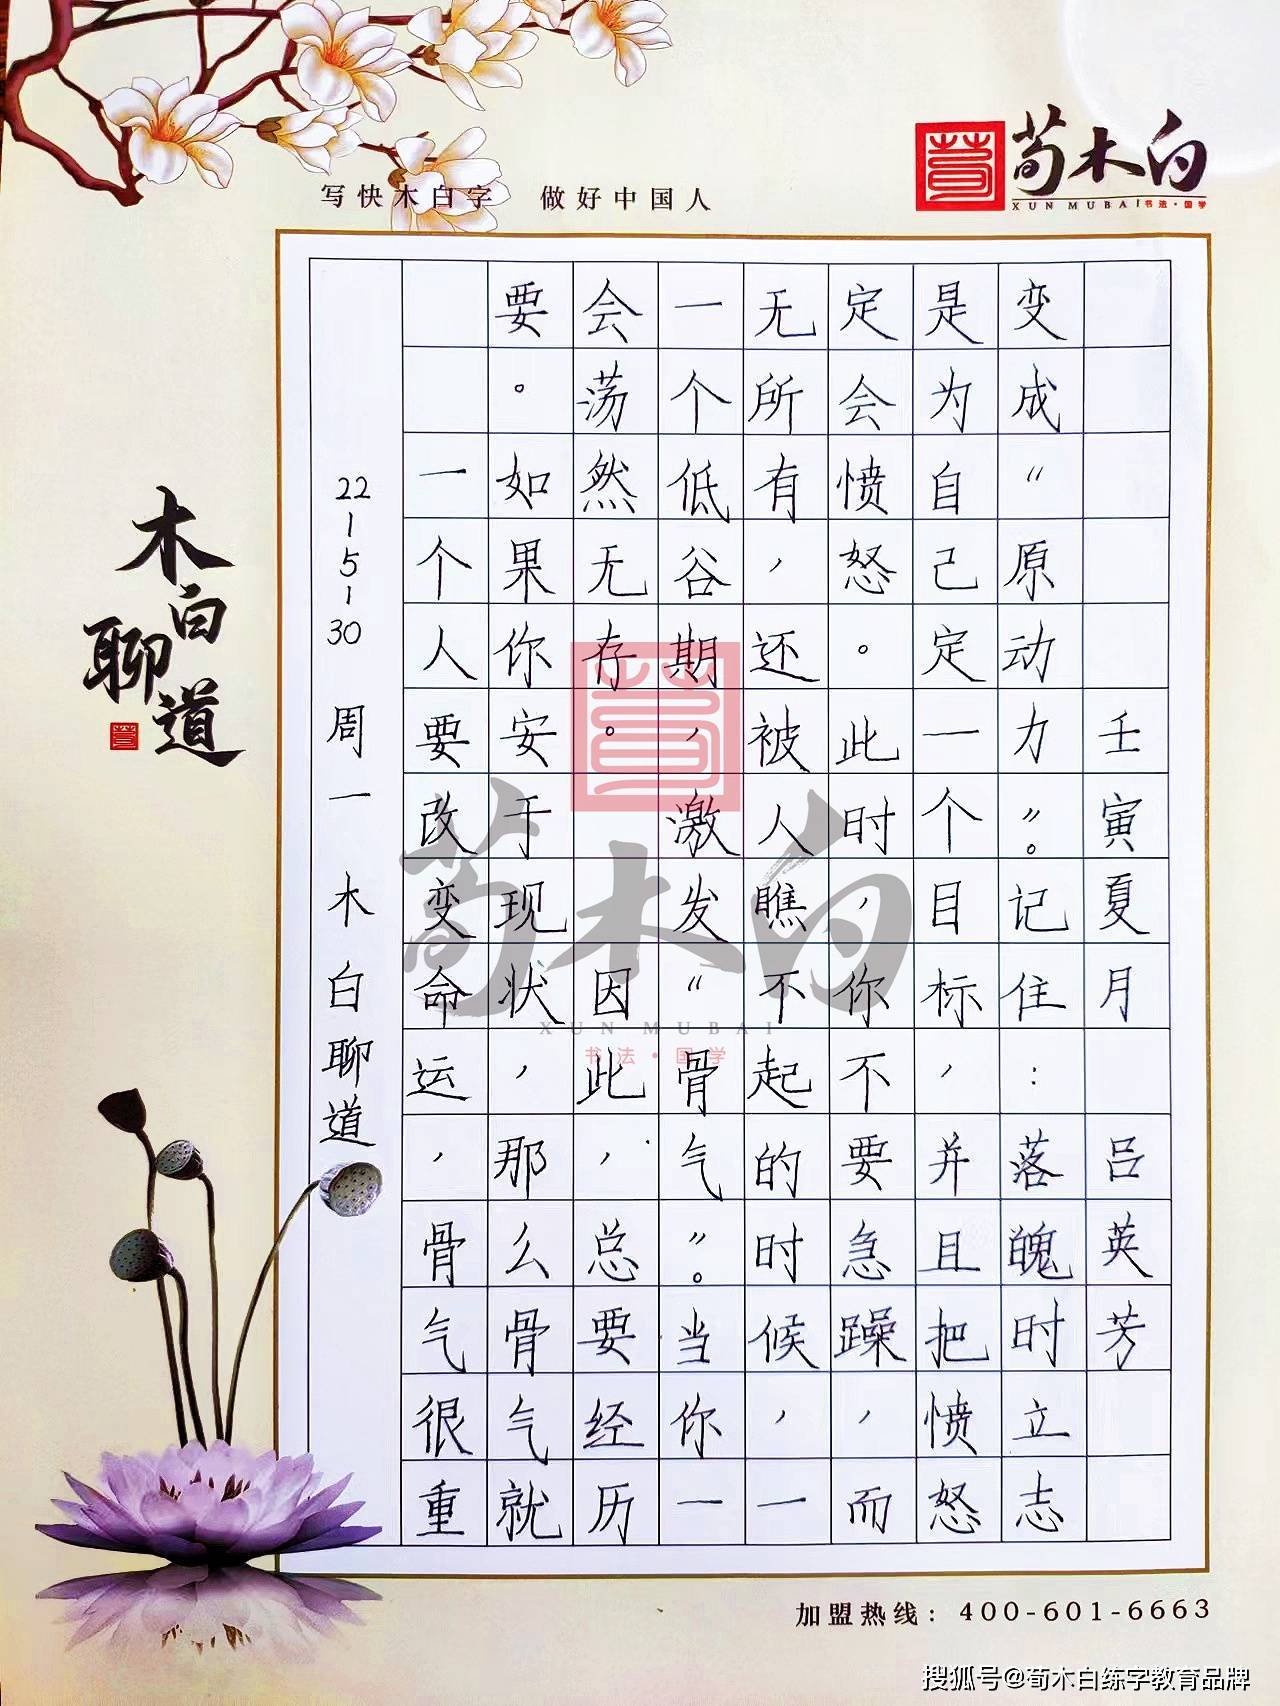 写快木白字 做好中国人
荀木白
XUN MUBAI 书法·国学
木白聊道
22-5-30 周一木白聊道
一个人要改变命运，骨气很重
要。如果你安于现状，那么骨气就
会荡然无存。因此，总要经历
一个低谷期，激发“骨气”。当你一
无所有，还被人瞧不起的时候，一
定会愤怒。此时，你不要急躁，而
是为自己定一个目标，并且把愤怒
变成“原动力”。记住：落魄时立志
壬寅夏月 吕英芳
荀木白
XUN MUBAI
书法·国学
加盟热线：400-601-6663
搜狐号@荀木白练字教育品牌